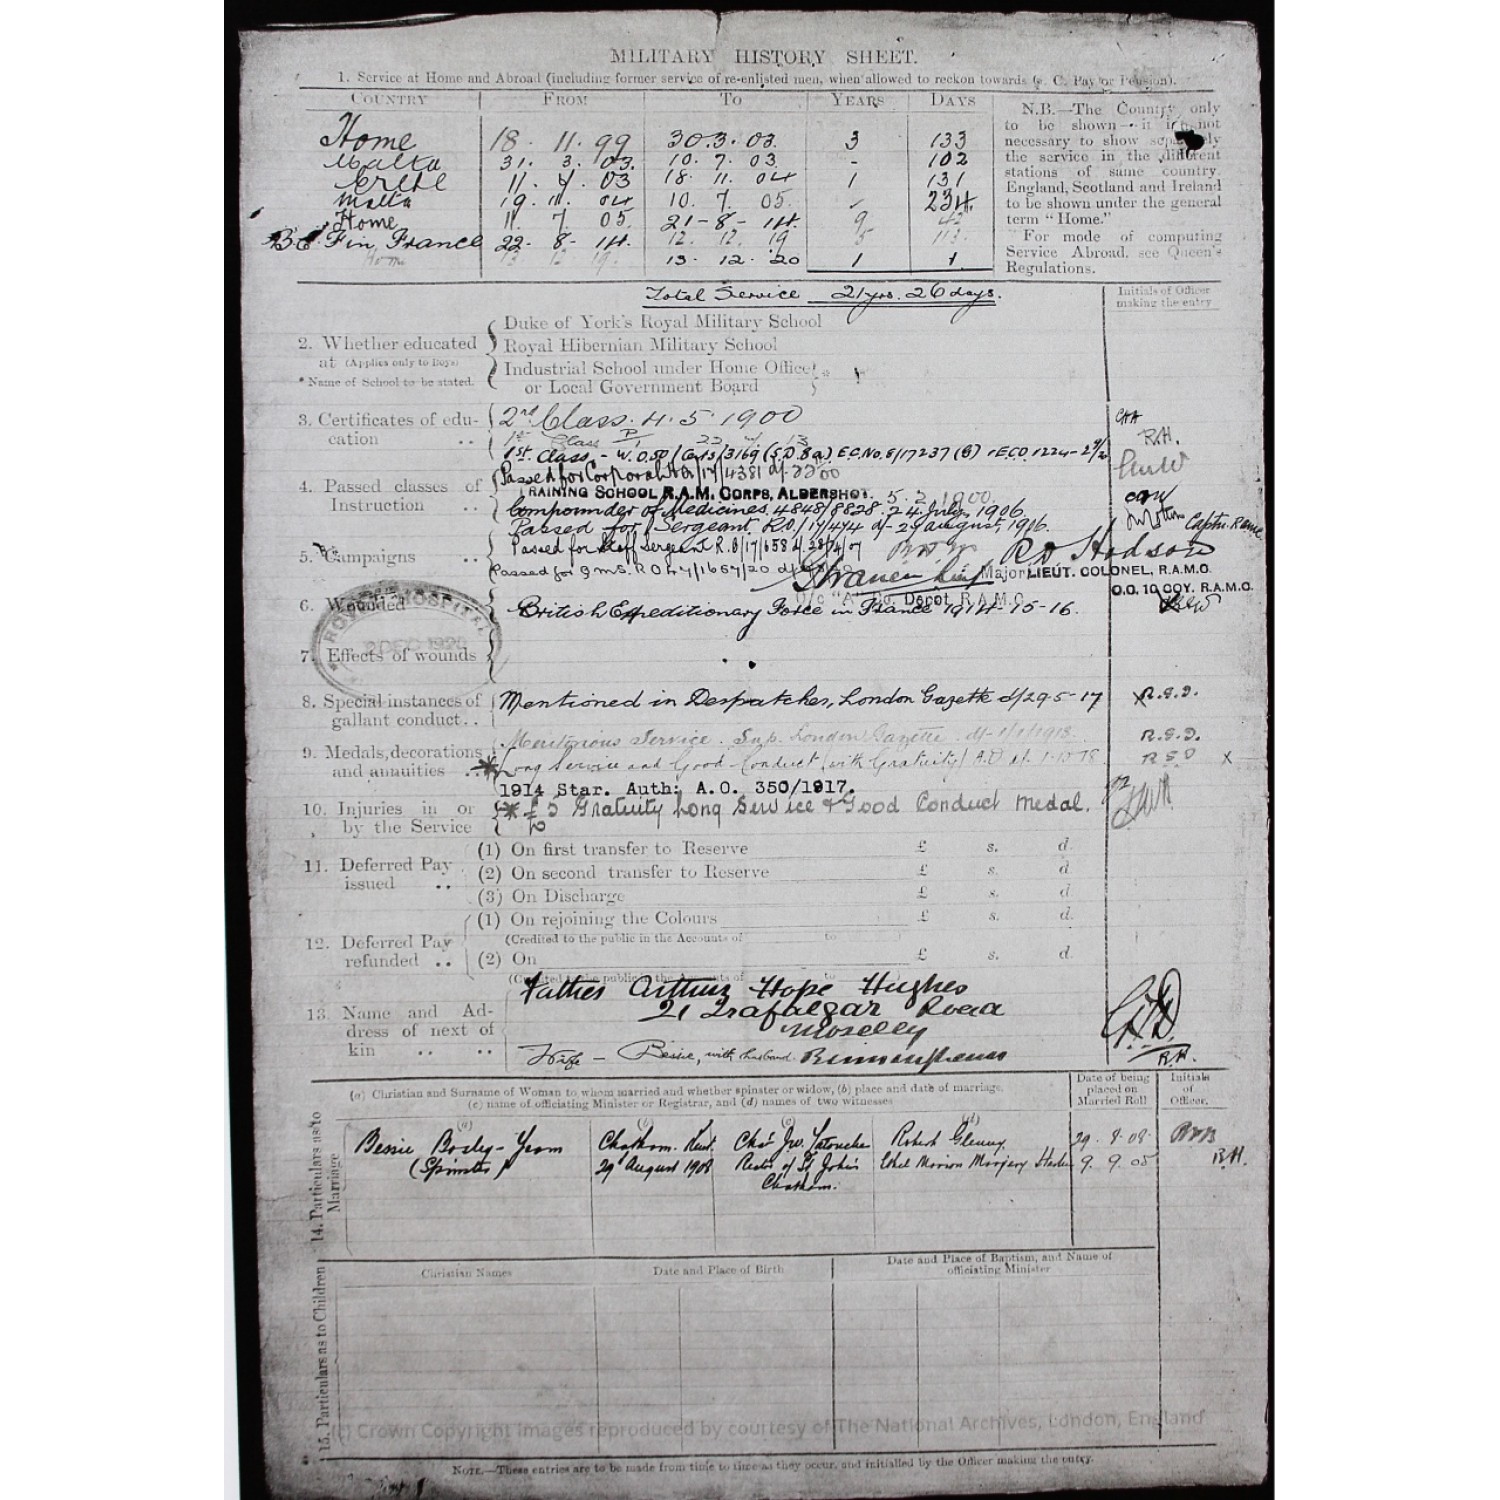 MILITARY HISTORY SHEET.
1. Service at Home and Abroad (including former service of re-enlisted men, when allowed to reckon towards G. C. Pay or Pension).
COUNTRY FROM TO YEARS DAYS
Home 18. 11. 99 30.3.03. 3 133
Malta 31. 3. 03. 10. 7. 03. - 102
Crete 11. 7. 03 18. 11. 04 1 131
Malta 19. 11. 04 10. 7. 05. - 234.
Home 11 7 05. 21-8-14. 9 42
B.E.F in France 22-8-14. 12. 12. 19 5 113
Home 13 12 19. 13. 12. 20 1 1.
N.B.—The Country only
to be shown—it is not
necessary to show separately
the service in the different
stations of same country.
England, Scotland and Ireland
to be shown under the general
term "Home."
For mode of computing
Service Abroad, see Queen's
Regulations.
Total Service 21 yrs. 26 days.
Initials of Officer
making the entry
2. Whether educated
at (Applies only to Boys)
*Name of School to be stated.
Duke of York's Royal Military School
Royal Hibernian Military School
Industrial School under Home Office
or Local Government Board *
3. Certificates of edu-
cation ..
2nd Class. 4. 5. 1900
1st Class
R.H.
1st. Class,- W.O.50/Certs/3169 (S.D.8a) E.C.No.8/17237 (8)
4. Passed classes of
Instruction ..
Passed for Corporal
TRAINING SCHOOL R.A.M. CORPS, ALDERSHOT. 5. 2. 1900.
Compounder of Medicines. 4848/8828. 24. July. 1906.
Passed for Sergeant. R.O./17/474 d- 29 august, 1906.
Captn. Ramc.
5. Campaigns ..
Passed for Staff Sergeant R.O/17/658 d/28/4/07
Passed for QMS. R.O 47/1667/20
R D Hodson
Major LIEUT. COLONEL, R.A.M.C.
O/c "A" Co. Depôt R.A.M.C.
O.O. 10 COY. R.A.M.C.
6. Wounded
British Expeditionary Force in France 1914-15-16.
ROYAL HOSPITAL
DEC 1920
7. Effects of wounds
8. Special instances of
gallant conduct..
Mentioned in Despatches, London Gazette d/29-5-17 R.G.D.
9. Medals, decorations
and annuities ..
Meritorious Service. Sup. London Gazette. d- 1/1/1918. R.G.D.
* Long Service and Good-Conduct (with Gratuity) A.O d/- 1-10-18 R.G.D X
1914 Star. Auth: A.O. 350/1917.
10. Injuries in or
by the Service
* £5 Gratuity Long Service & Good Conduct medal.
11. Deferred Pay
issued ..
(1) On first transfer to Reserve £ s. d.
(2) On second transfer to Reserve £ s. d.
(3) On Discharge £ s. d.
12. Deferred Pay
refunded ..
(1) On rejoining the Colours £ s. d.
(Credited to the public in the Accounts of to )
(2) On £ s. d.
(Credited to the public in the Accounts of to
13. Name and Ad-
dress of next of
kin .. ..
Father Arthur Hope Hughes
21 Trafalgar Road
Moselly
Wife - Bessie, with husband. Birmingham
R.H.
14. Particulars as to Marriage
(a) Christian and Surname of Woman to whom married and whether spinster or widow, (b) place and date of marriage,
(c) name of officiating Minister or Registrar, and (d) names of two witnesses
Date of being
placed on
Married Roll
Initials
of
Officer.
(a) (b) (c) (d)
Bessie Chatham. Kent. Robert Glenny 29. 8. 08.
(Spinster) 29 August 1908 Rector of St John's Ethel Marion Margery 9. 9. 08 R.H.
Chatham.
15. Particulars as to Children
Christian Names
Date and Place of Birth
Date and Place of Baptism, and Name of
officiating Minister
(c) Crown Copyright images reproduced by courtesy of The National Archives, London, England
NOTE.—These entries are to be made from time to time as they occur, and initialled by the Officer making the entry.